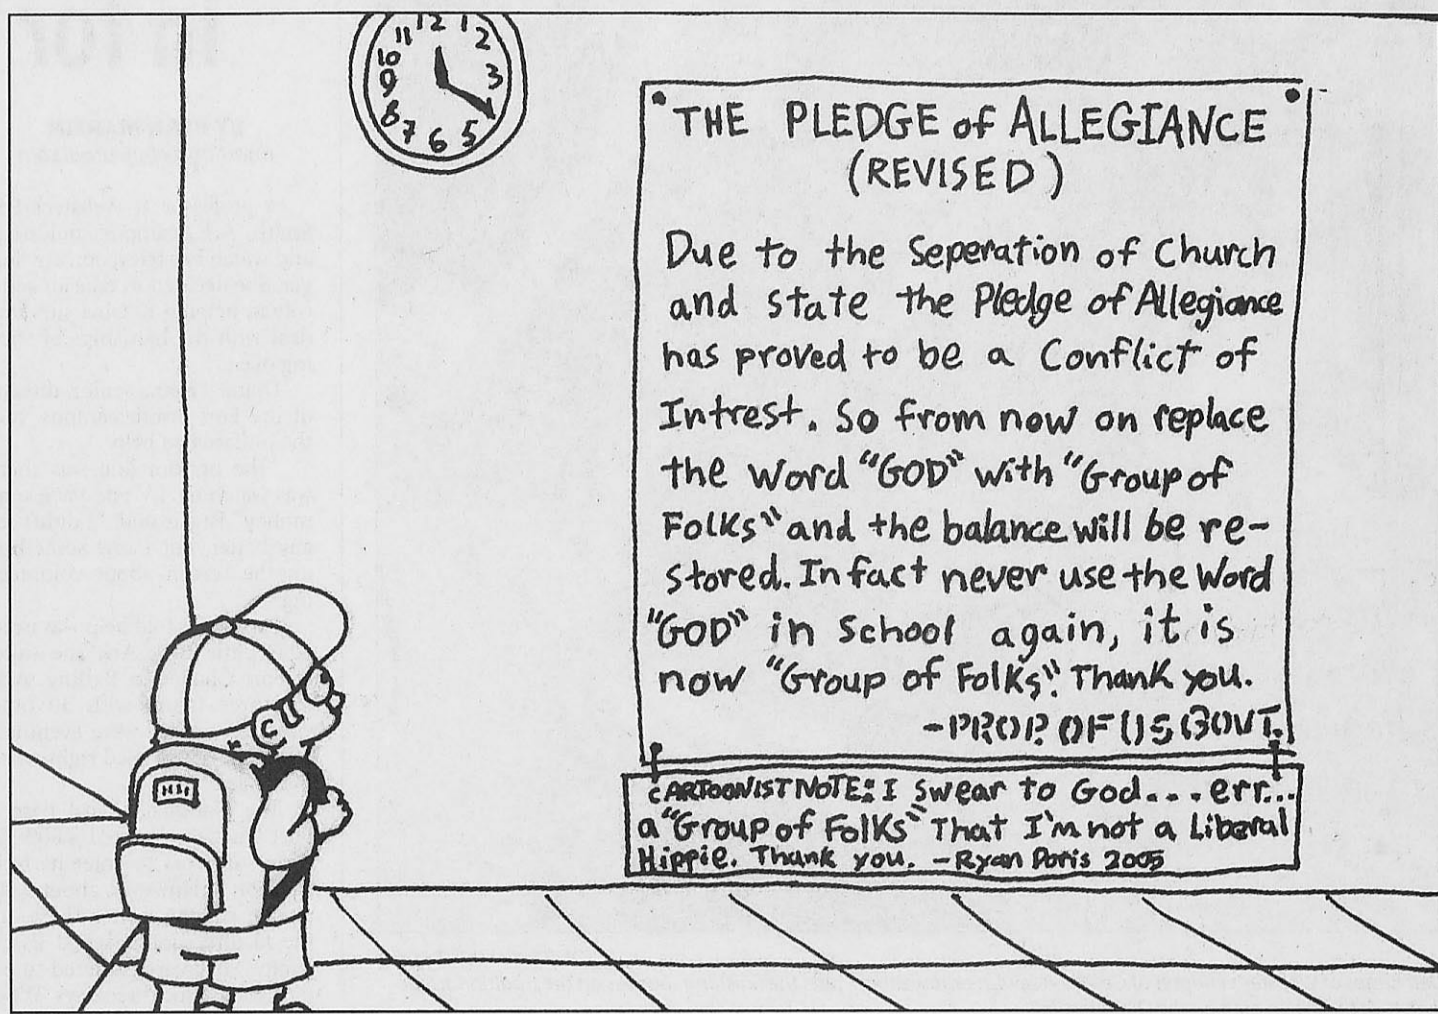 11 12 1
10 2
9 3
8
7 6 5
THE PLEDGE of ALLEGIANCE
(REVISED)
Due to the Seperation of Church
and state the Pledge of Allegiance
has proved to be a Conflict of
Intrest. So from now on replace
the Word "GOD" with "Group of
Folks" and the balance will be re-
stored. In fact never use the Word
"GOD" in School again, it is
now "Group of Folks". Thank you.
-PROP. OF US GOVT.
CARTOONIST NOTE: I swear to God... err...
a "Group of Folks" That I'm not a Liberal
Hippie. Thank you. -Ryan Poris 2005